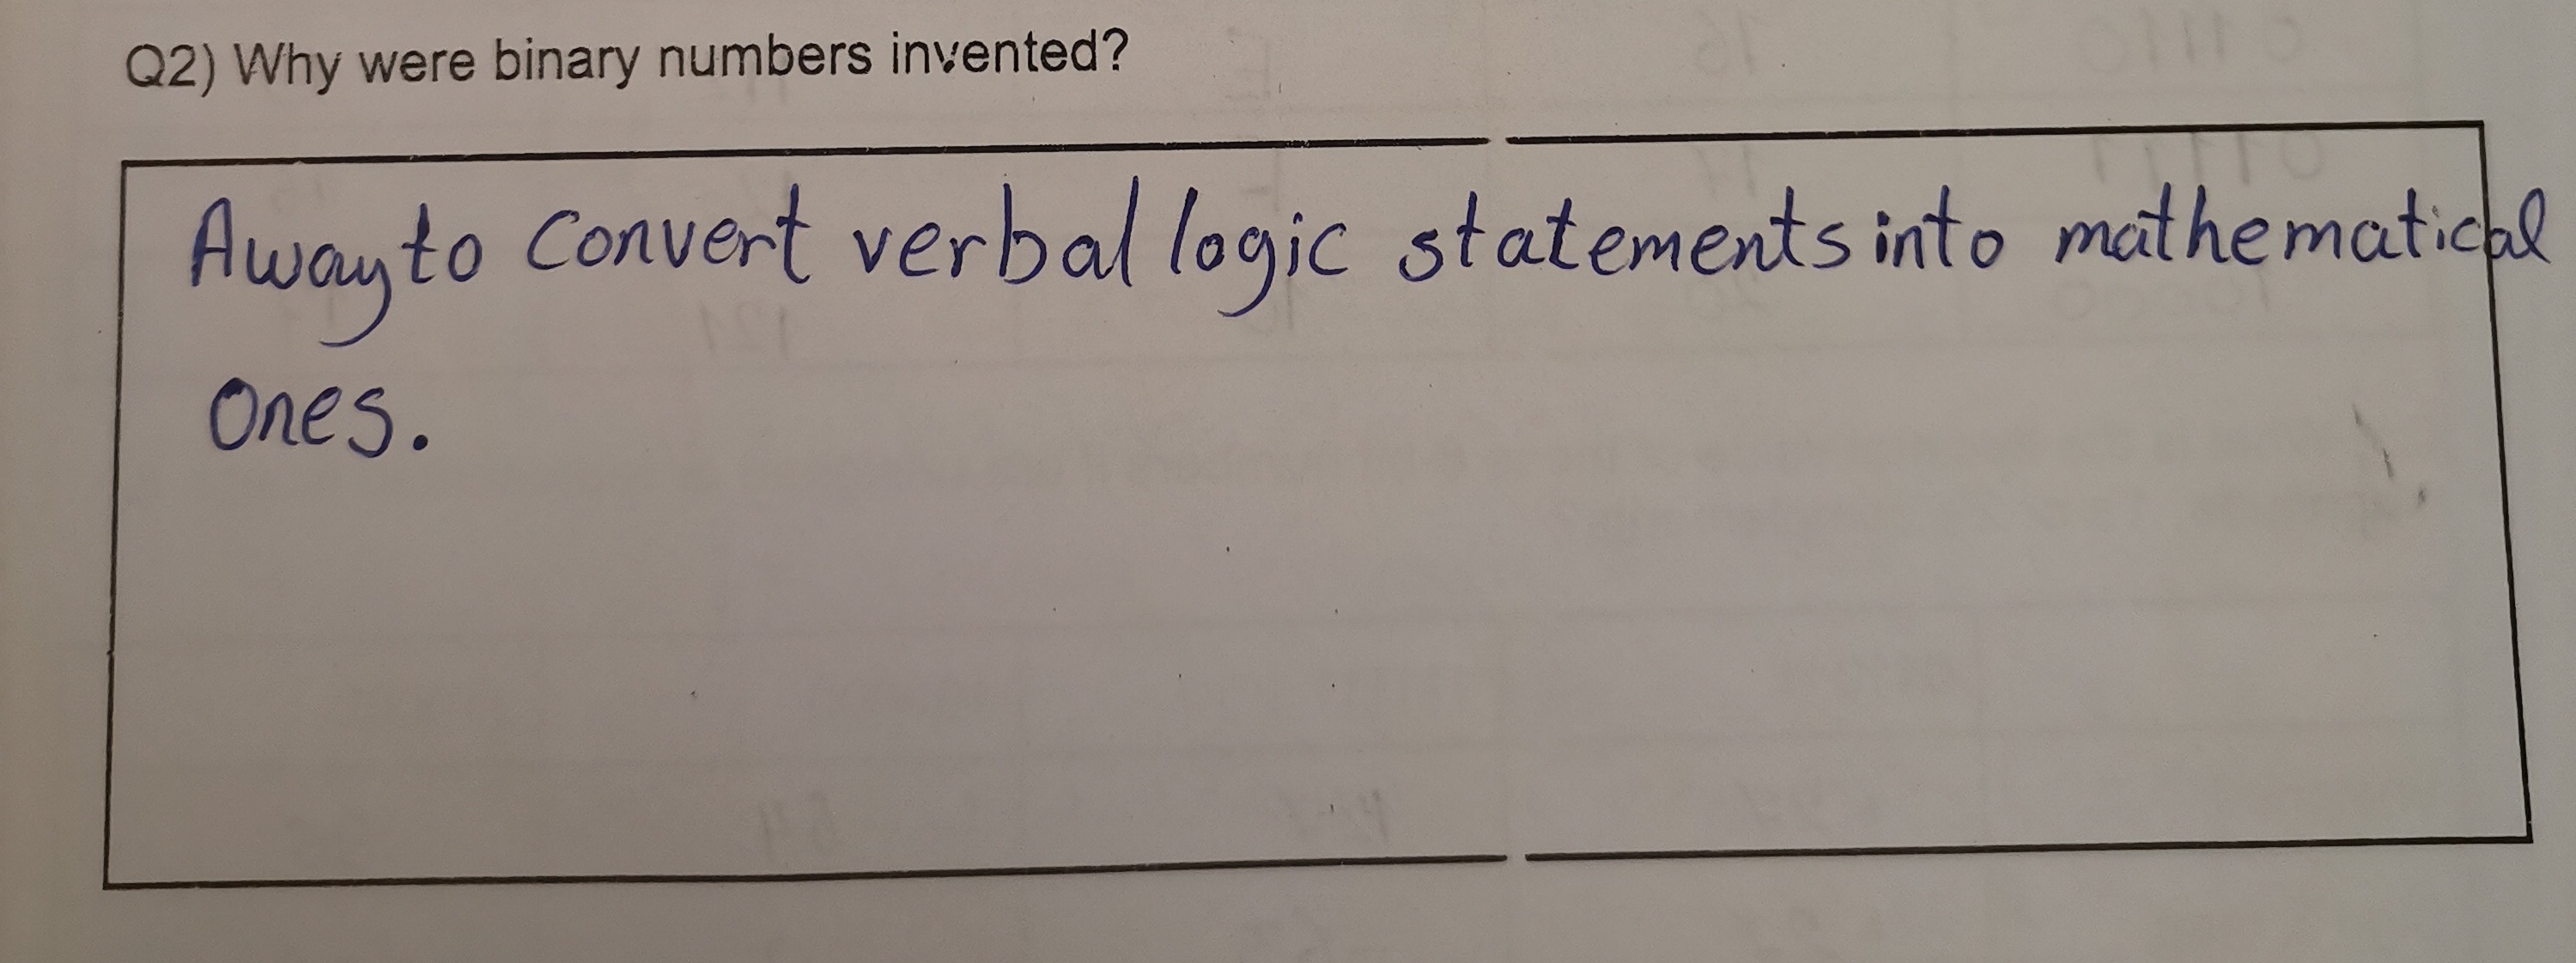 Q2) Why were binary numbers invented?
A way to convert verbal logic statements into mathematical
ones.